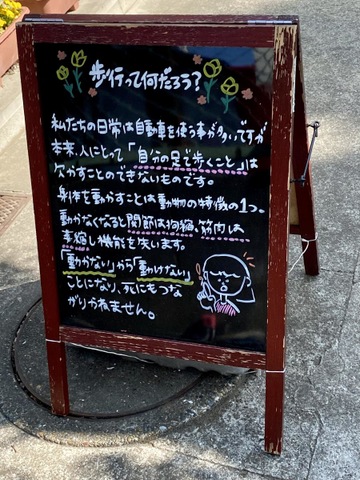 歩行って何だろう?
私たちの日常は自動車を使う事が多いですが
本来人にとって「自分の足で歩くこと」は
欠かすことのできないものです。
身体を動かすことは動物の特徴の1つ。
動かなくなると関節は拘縮、筋肉は
萎縮し機能を失います。
「動かない!」から「動けない」
ことになり、死にもつな
がりかねません。